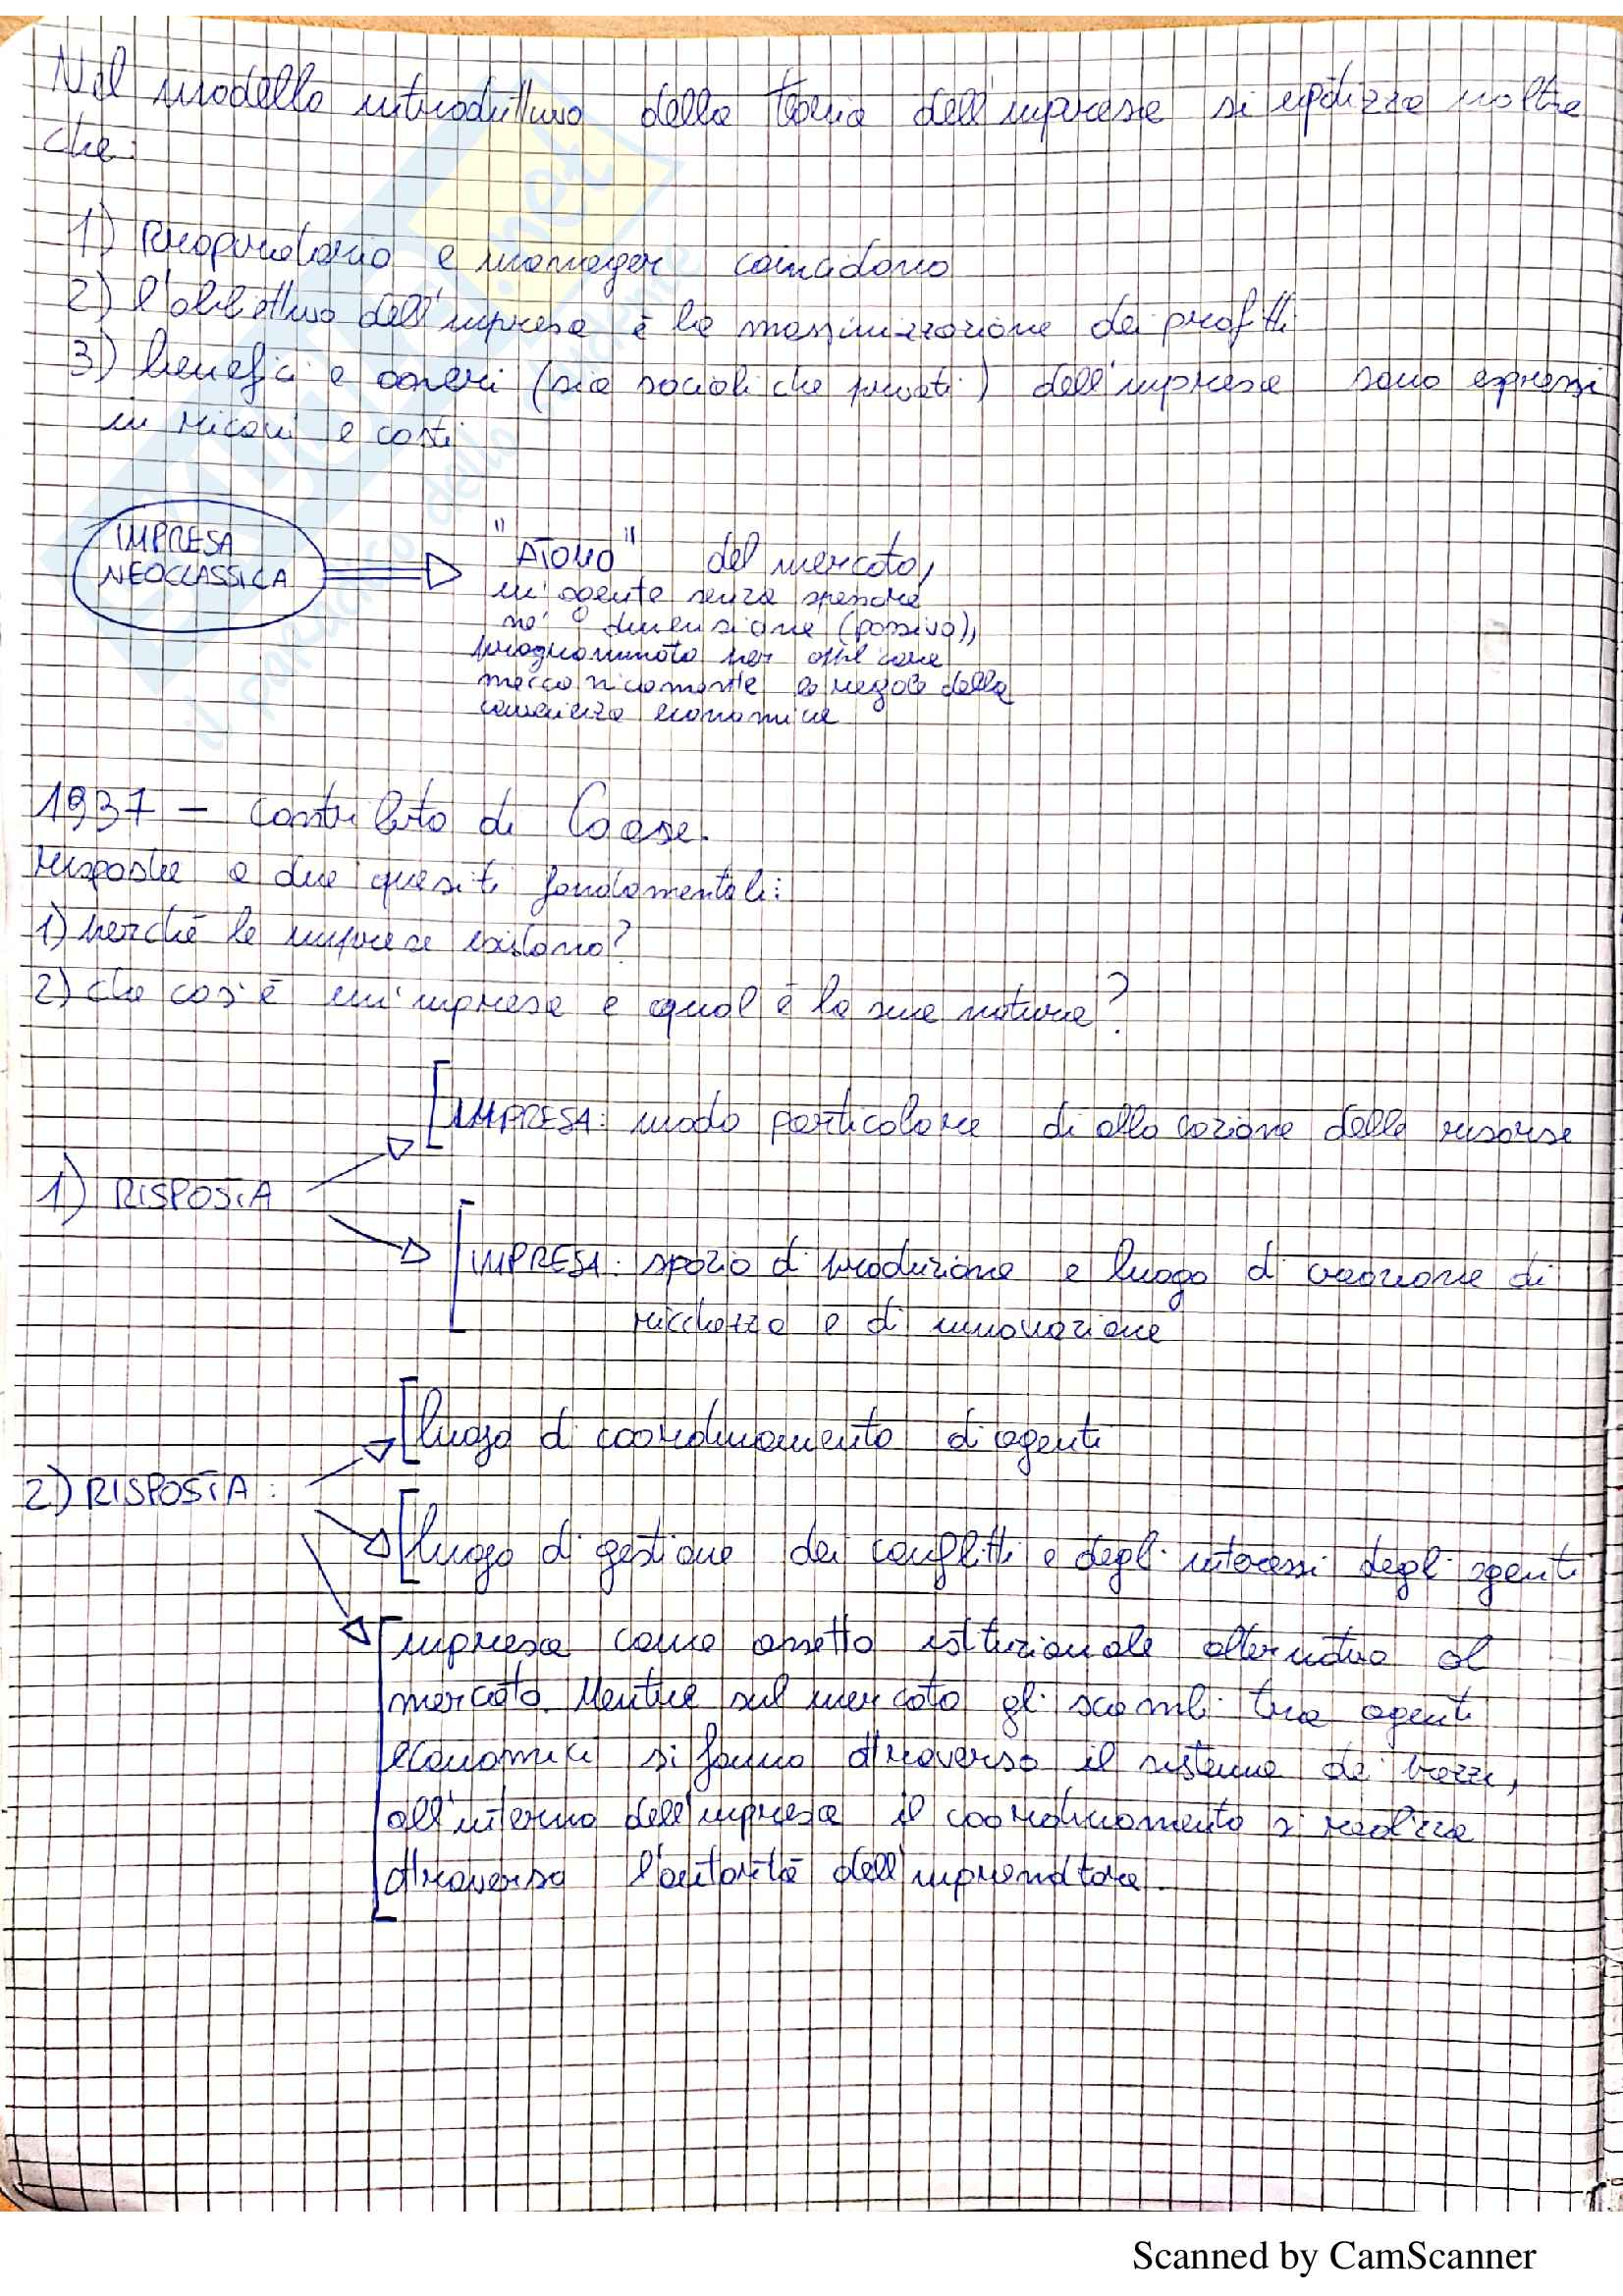 Nel modello introduttivo della teoria dell'impresa si ipotizza inoltre
che:
1) Proprietario e manager coincidono
2) l'obiettivo dell'impresa è la massimizzazione dei profitti
3) benefici e oneri (sia sociali che privati) dell'impresa sono espressi
in ricavi e costi
IMPRESA
NEOCLASSICA
"ATOMO" del mercato,
un'agente senza spessore
né dimensione (passivo),
programmato per applicare
meccanicamente le regole della
convenienza economica
1937 - contributo di Coase.
risposte a due quesiti fondamentali:
1) perché le imprese esistono?
2) che cos'è un'impresa e qual è la sua natura?
IMPRESA: modo particolare di allocazione delle risorse
1) RISPOSTA
IMPRESA: spazio di produzione e luogo di creazione di
ricchezza e di innovazione
luogo di coordinamento di agenti
2) RISPOSTA:
luogo di gestione dei conflitti e degli interessi degli agenti
impresa come assetto istituzionale alternativo al
mercato. Mentre sul mercato gli scambi tra agenti
economici si fanno attraverso il sistema dei prezzi,
all'interno dell'impresa il coordinamento si realizza
attraverso l'autorità dell'imprenditore.
.net
il paradiso dello studente
Scanned by CamScanner